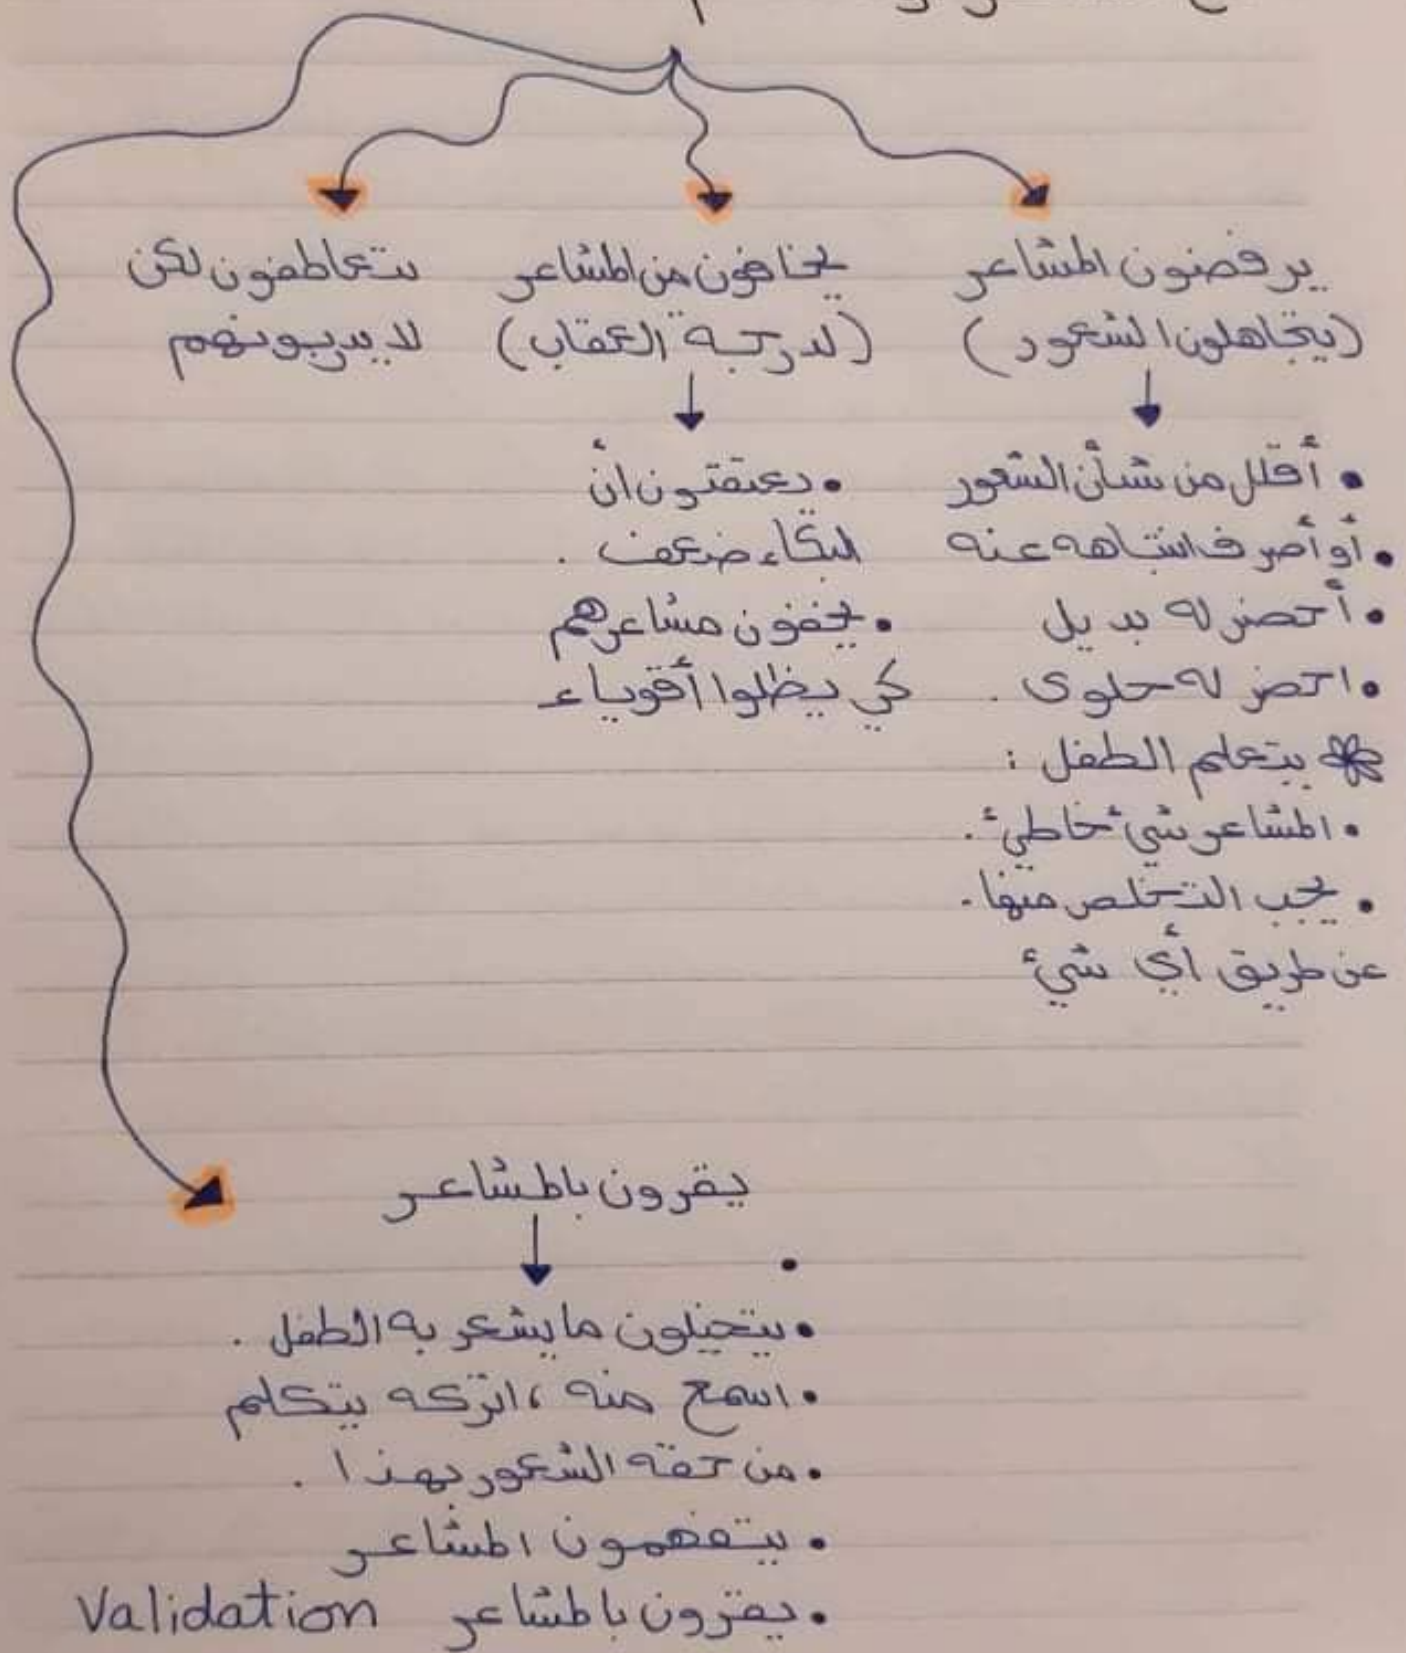 يرفضون المشاعر
(يتجاهلون الشعور)
أقلل من شأن الشعور
أو أصرف انتباهه عنه
أحضر له بديل
احضر له حلوى.
يتعلم الطفل:
المشاعر شيئ خاطئ.
يجب التخلص منها.
عن طريق أي شيئ
يخافون من المشاعر
(لدرجة العقاب)
يعتقدون أن
البكاء ضعف.
يخفون مشاعرهم
كي يظلوا أقوياء
يتعاطفون لكن
لا يدربونهم
يقرون بالمشاعر
يتخيلون ما يشعر به الطفل.
اسمع منه، اتركه يتكلم
من حقه الشعور بهذا.
يتفهمون المشاعر
يقرون بالمشاعر Validation